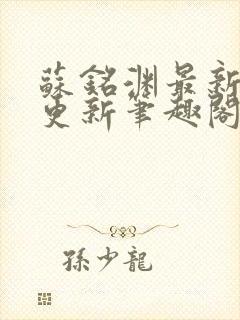 蘇銘淵最新
更新筆趣閣
孫少龍